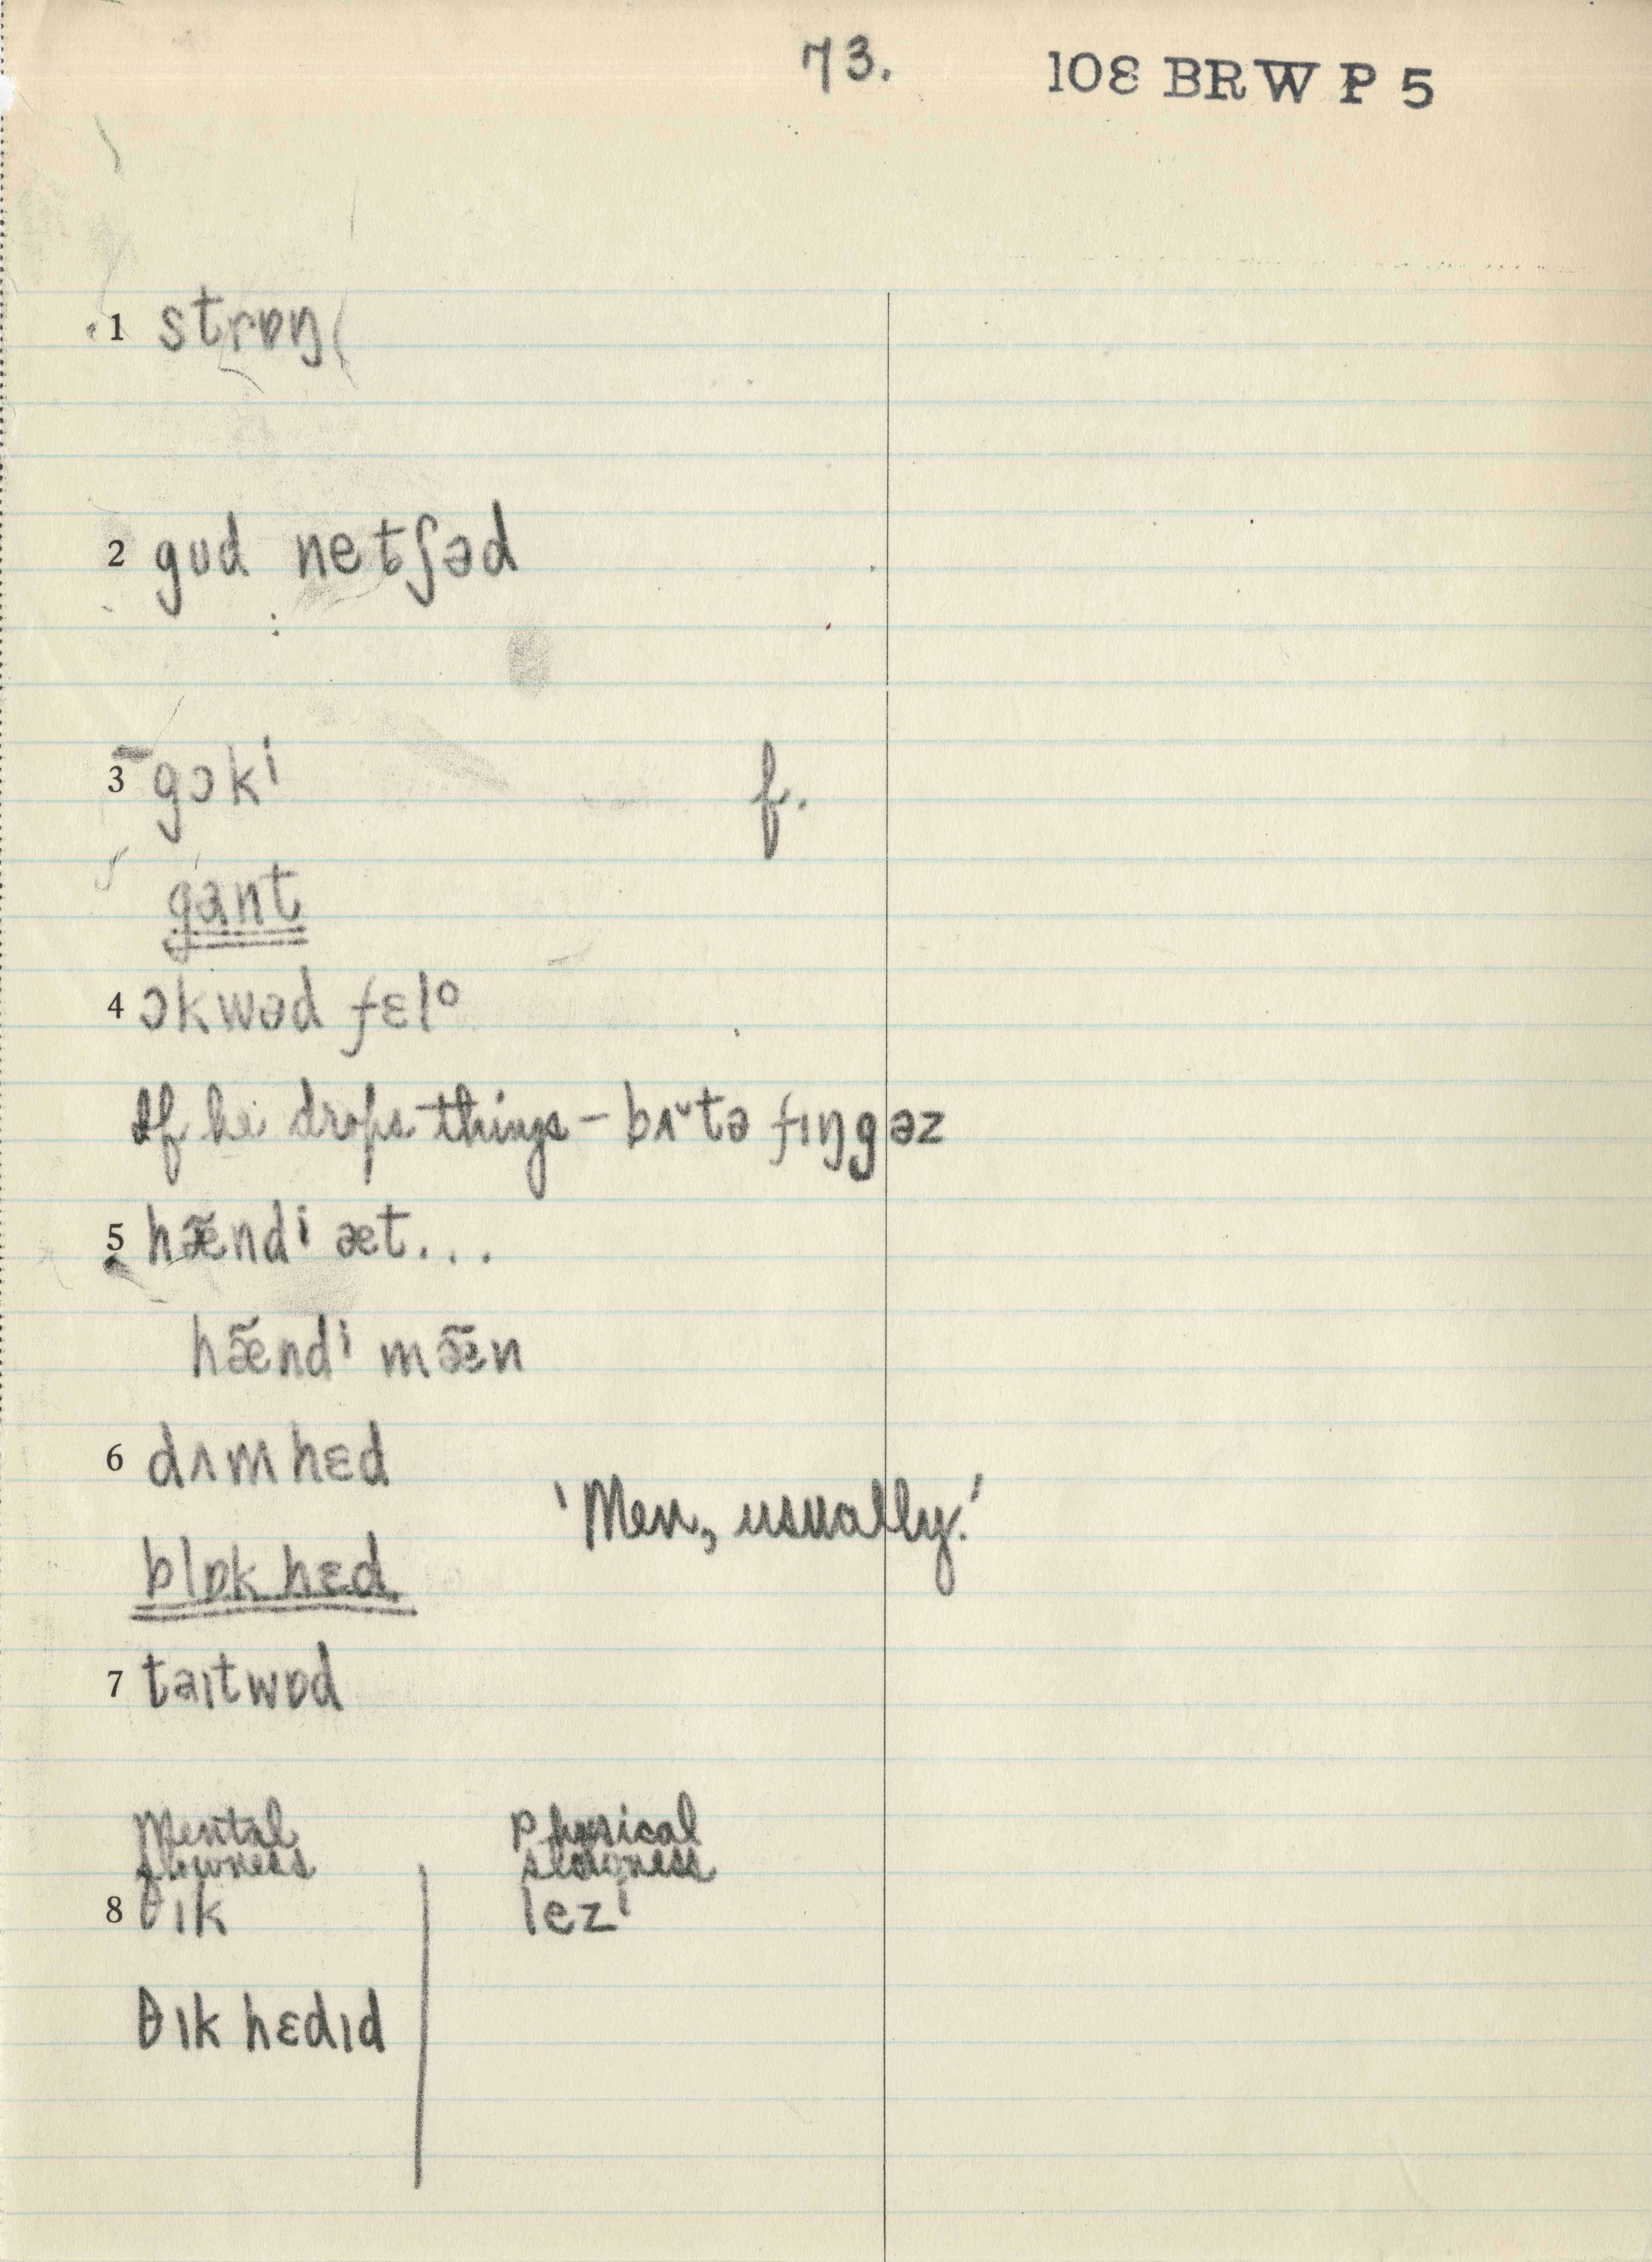 73. 108 BRW P 5
1 strɒŋ
2 gud netʃəd
3 gɔkⁱ f.
gant
4 ɔkwəd fɛlᵒ
If he drops things – bʌ˘tə fɪŋgəz
5 hæ̃ndⁱ æt...
hæ̃ndⁱ mæ̃n
6 dʌmhɛd
'Men, usually.'
blɒk hɛd
7 taɪtwɒd
Mental slowness Physical slowness
8 θɪk lezⁱ
θɪk hɛdɪd